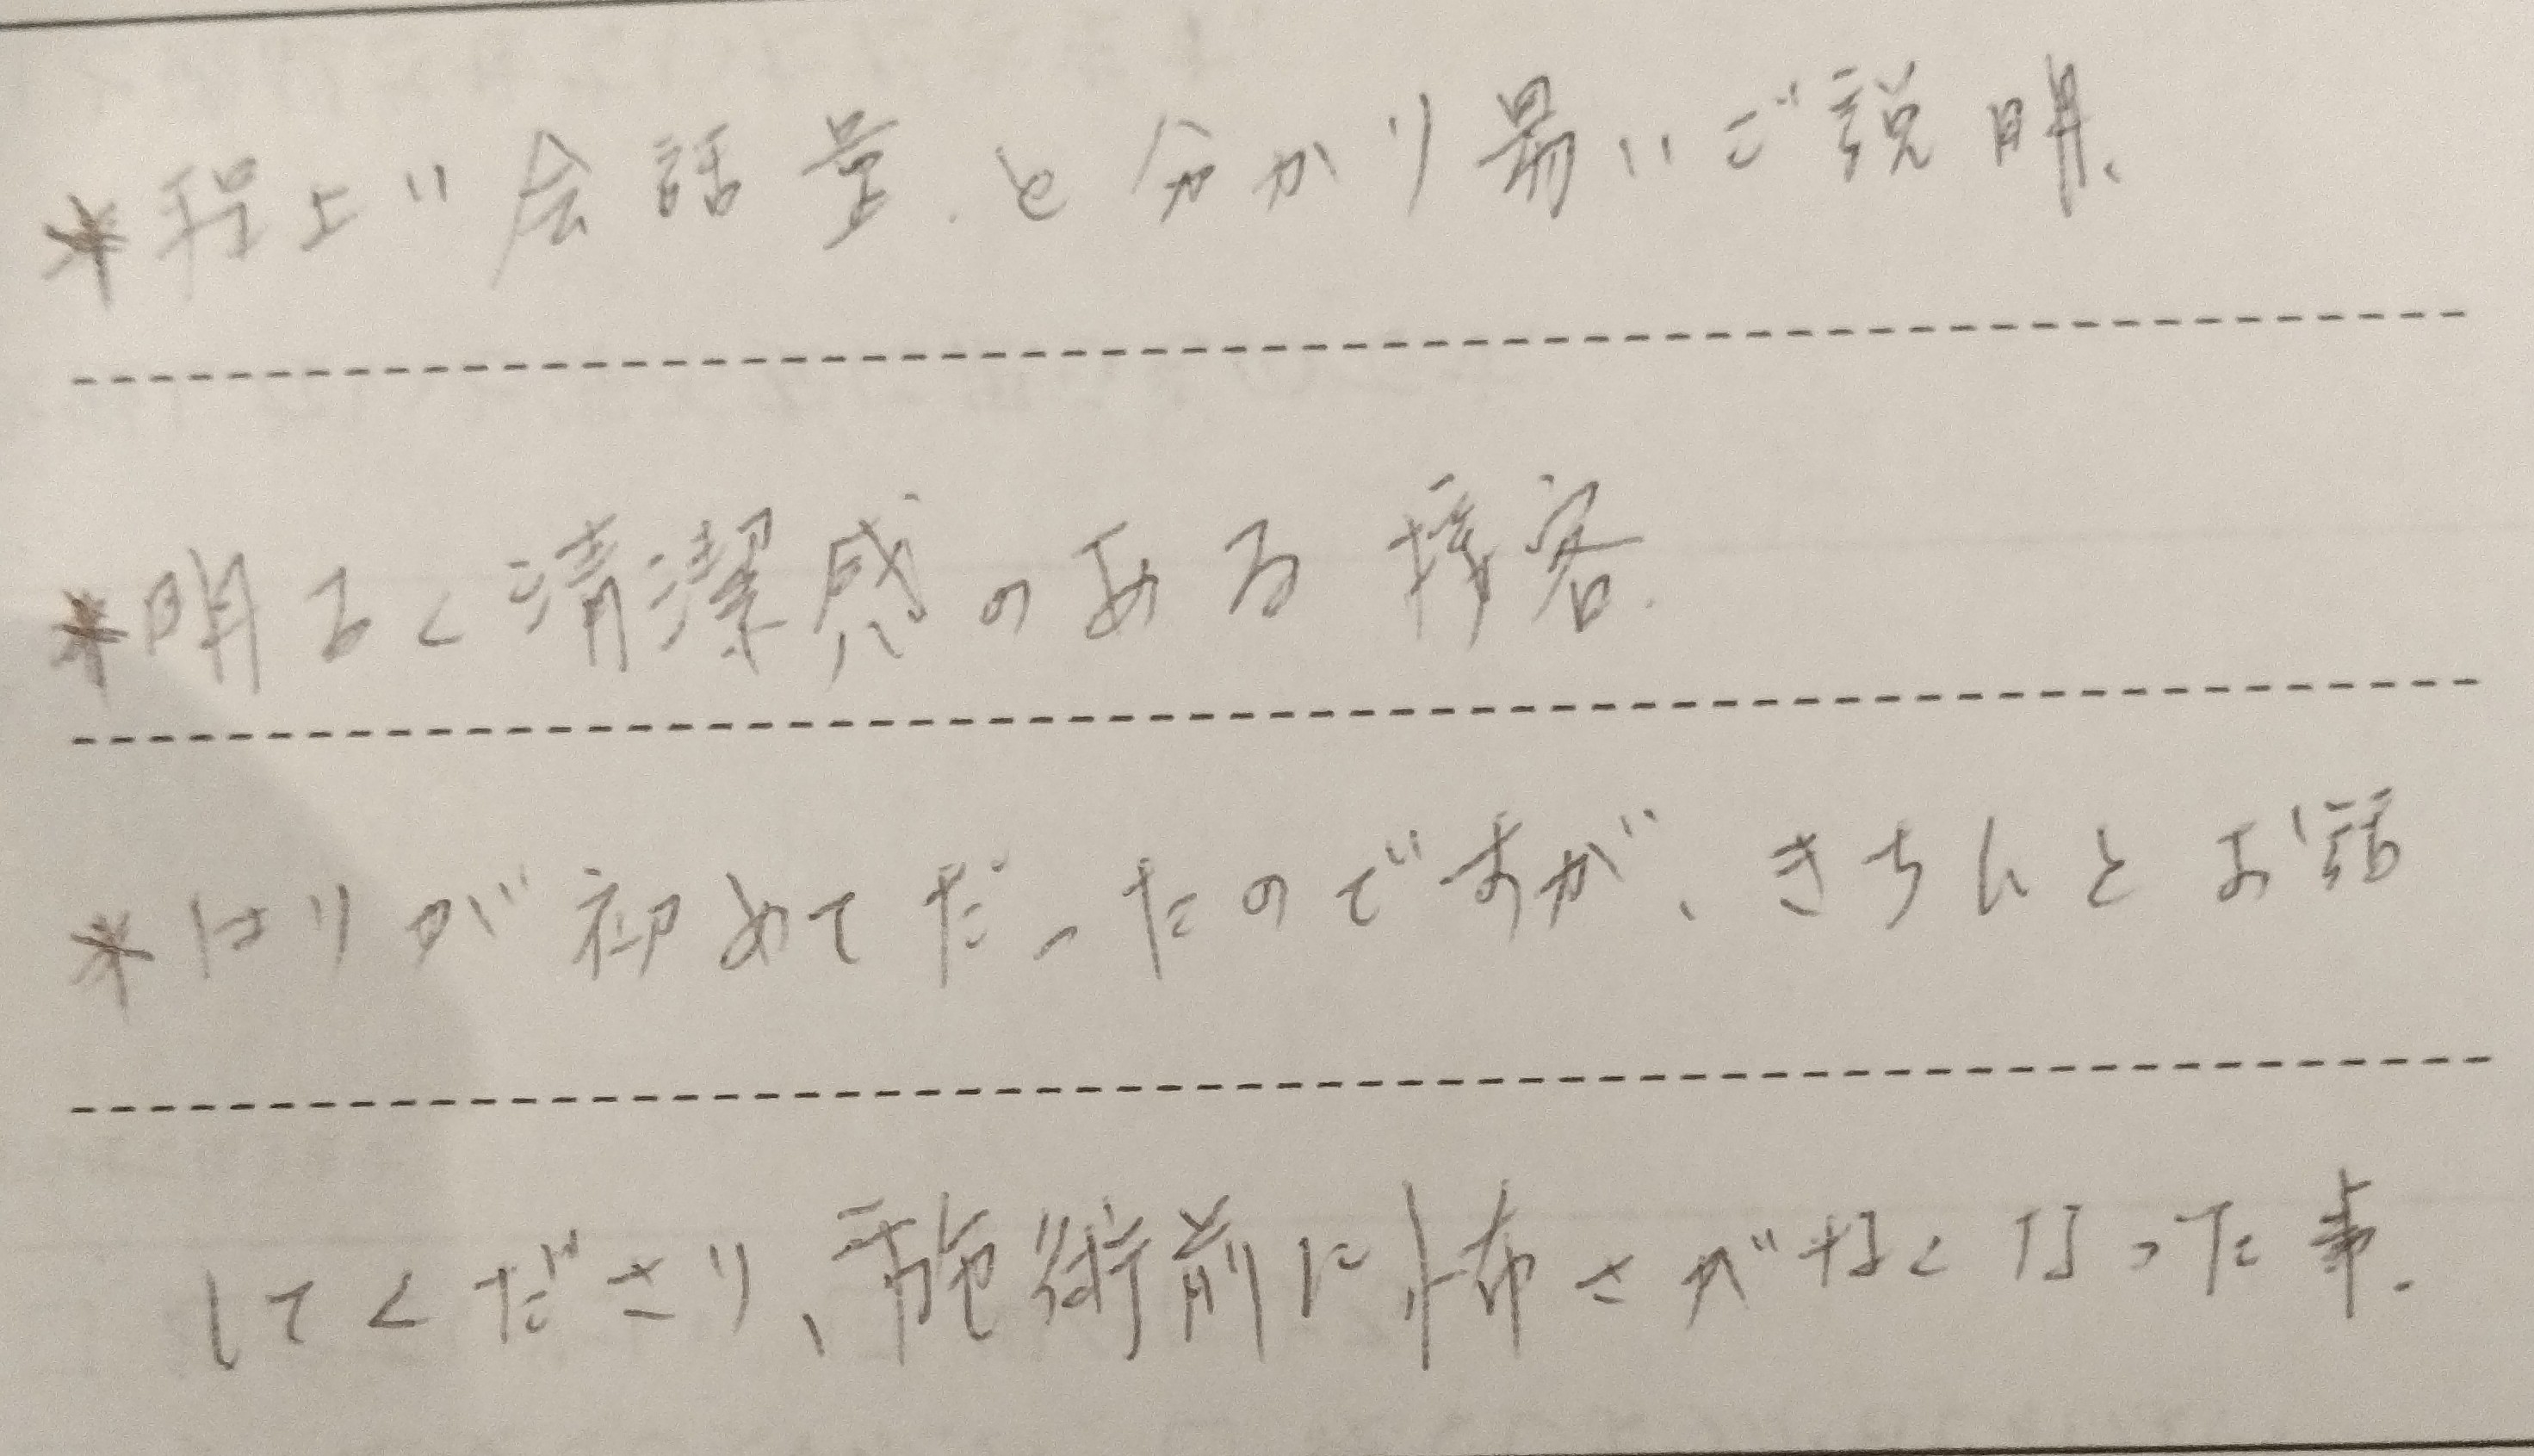 *程よい会話量と分かり易いご説明、
*明るく清潔感のある接客.
*はりが初めてだったのですが、きちんとお話
してくださり、施術前に怖さがなくなった事.